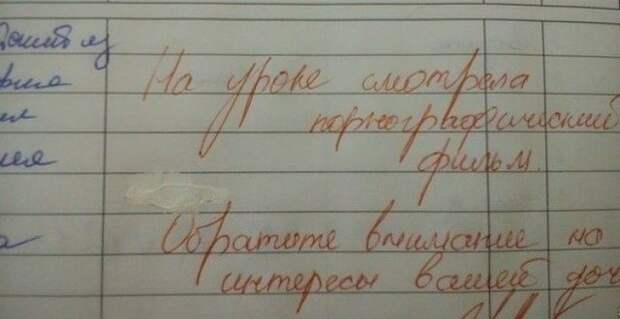 На уроке смотрела
порнографический
фильм.
Обратите внимание на
интересы вашей доч